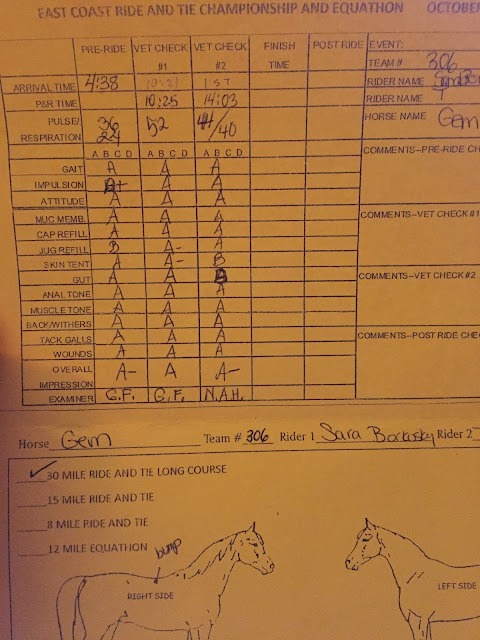 EAST COAST RIDE AND TIE CHAMPIONSHIP AND EQUATHON OCTOBER
PRE-RIDE VET CHECK #1 VET CHECK #2 FINISH TIME POST RIDE EVENT:
TEAM # 306
ARRIVAL TIME 4:38 10:21 1ST RIDER NAME
P&R TIME 10:25 14:03 RIDER NAME
PULSE/ RESPIRATION 36 24 52 44/40 HORSE NAME Gem
A B C D A B C D A B C D COMMENTS--PRE-RIDE CH
GAIT A A A
IMPULSION A+ A A
ATTITUDE A A A
MUC MEMB. A A A COMMENTS--VET CHECK #1
CAP REFILL A A A
JUG REFILL B A- A
SKIN TENT A A- B
GUT A A B COMMENTS--VET CHECK #2
ANAL TONE A A A
MUSCLE TONE A A A
BACK/WITHERS A A A
TACK GALLS A A A COMMENTS--POST RIDE CHE
WOUNDS A A A
OVERALL IMPRESSION A- A A-
EXAMINER G.F. G.F. N.A.H.
Horse Gem Team # 306 Rider 1 Sara Rider 2
✓ 30 MILE RIDE AND TIE LONG COURSE
15 MILE RIDE AND TIE
8 MILE RIDE AND TIE
12 MILE EQUATHON
bump
RIGHT SIDE LEFT SIDE